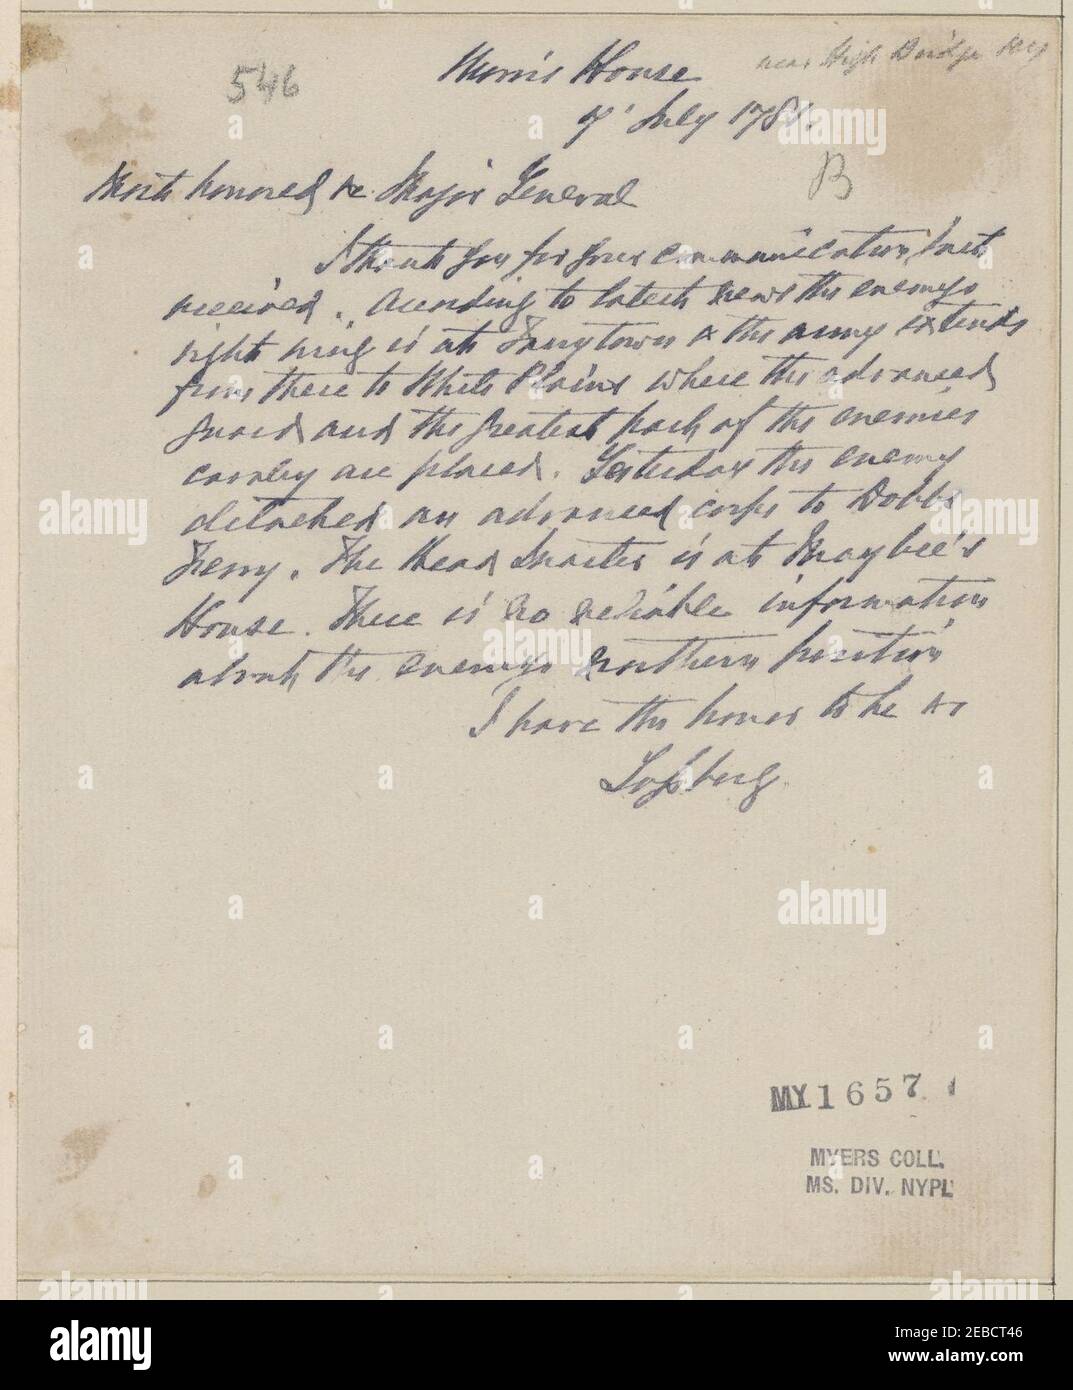 546
Morris House near High Bridge
7' July 1781.
B
Most honored &c. Major General
I thank you for your communication, last
received. According to latest news the enemys
right wing is at Tarrytown & the army extends
from there to White Plains where the advanced
guard and the greatest part of the enemies
cavalry are placed. Yesterday the enemy
detached an advanced corps to Dobbs
Ferry. The Head Quarter is at Maybee's
House. There is no reliable information
about the enemys northern position
I have the honor to be &c
Loßberg.
MY 1657
MYERS COLL.
MS. DIV. NYPL
alamy
Image ID: 2EBCT46
www.alamy.com